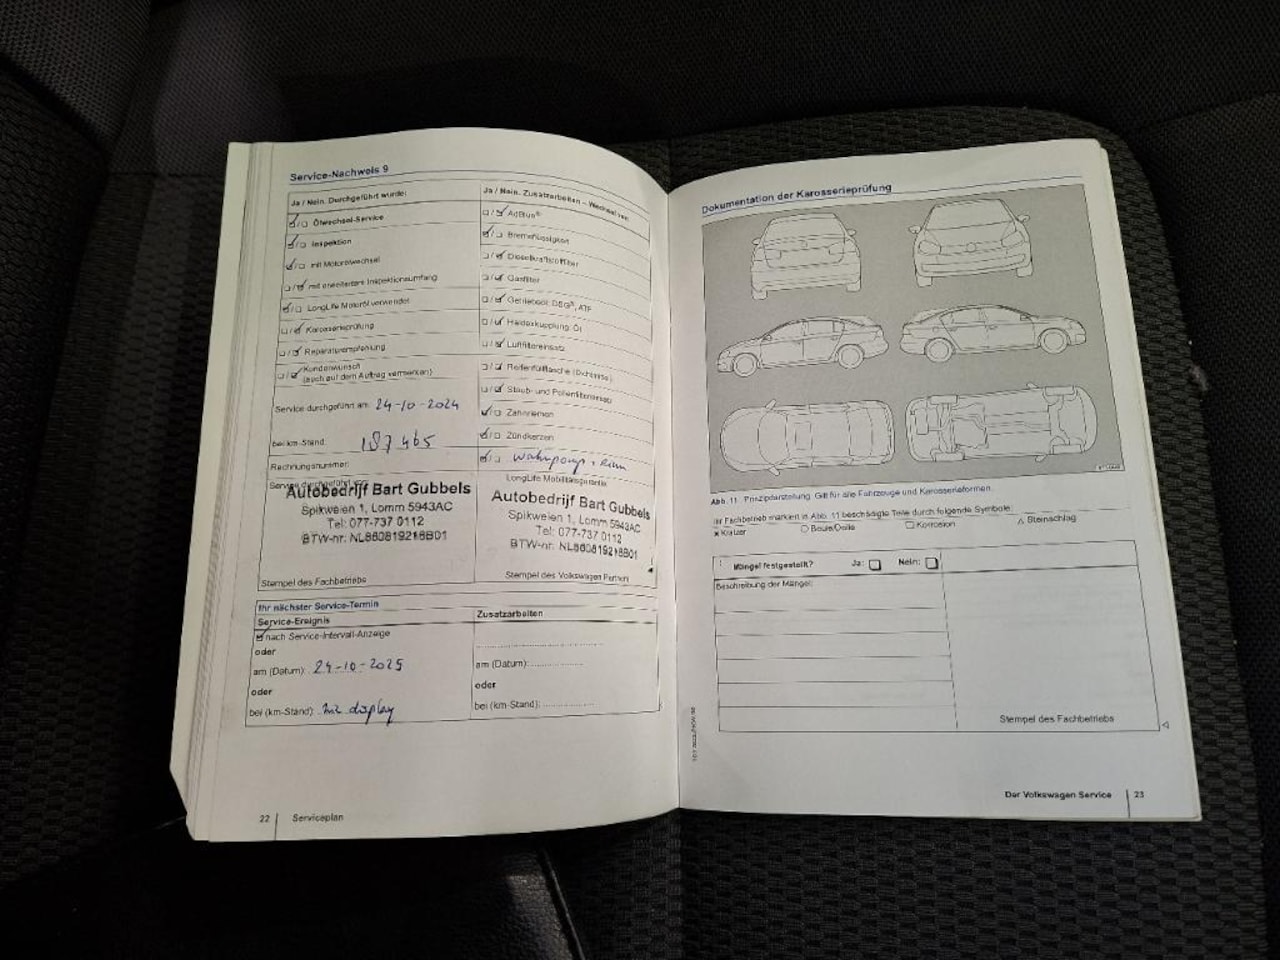 Service-Nachweis 9
Ja / Nein. Durchgeführt wurde:
Ölwechsel-Service
Inspektion
mit Motorölwechsel
mit erweitertem Inspektionsumfang
LongLife Motoröl verwendet
Karosserieprüfung
Reparaturempfehlung
Kundenwunsch
(auch auf dem Auftrag vermerken)
Service durchgeführt am: 24-10-2024
bei km-Stand: 187465
Rechnungsnummer:
Service durchgeführt
Autobedrijf Bart Gubbels
Spikweien 1, Lomm 5943AC
Tel: 077-737 0112
BTW-nr: NL860819218B01
Stempel des Fachbetriebs
Ja / Nein. Zusatzarbeiten – Wechsel von:
AdBlue®
Bremsflüssigkeit
Dieselkraftstofffilter
Gasfilter
Getriebeöl: DSG®, ATF
Haldexkupplung: Öl
Luftfiltereinsatz
Reifenfüllflasche (Dichtmittel)
Staub- und Pollenfiltereinsatz
Zahnriemen
Zündkerzen
LongLife Mobilitätsgarantie
Autobedrijf Bart Gubbels
Spikweien 1, Lomm 5943AC
Tel: 077-737 0112
BTW-nr: NL860819218B01
Stempel des Volkswagen Partners
Ihr nächster Service-Termin
Service-Ereignis
nach Service-Intervall-Anzeige
oder
am (Datum): 24-10-2025
oder
bei (km-Stand): zie display
Zusatzarbeiten
am (Datum):
oder
bei (km-Stand):
22 Serviceplan
Dokumentation der Karosserieprüfung
Abb. 11 Prinzipdarstellung. Gilt für alle Fahrzeuge und Karosserieformen.
Ihr Fachbetrieb markiert in Abb. 11 beschädigte Teile durch folgende Symbole:
× Kratzer ○ Beule/Delle □ Korrosion △ Steinschlag
Mängel festgestellt? Ja: Nein:
Beschreibung der Mängel:
Stempel des Fachbetriebs
Der Volkswagen Service 23